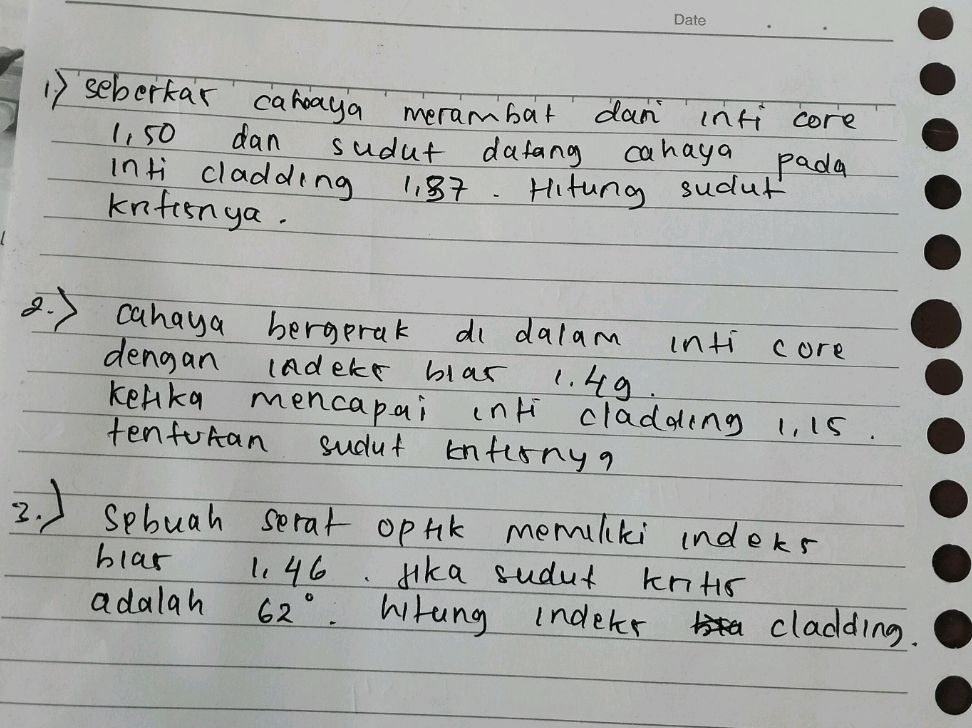 Date
1.) seberkar cahaya merambat dari inti core
1,50 dan sudut datang cahaya pada
inti cladding 1,37. Hitung sudut
kritisnya.
2.) cahaya bergerak di dalam inti core
dengan indeks bias 1.49.
ketika mencapai inti cladding 1,15.
tentukan sudut kritisnya
3.) Sebuah serat optik memiliki indeks
bias 1,46. Jika sudut kritis
adalah 62°. hitung indeks cladding.